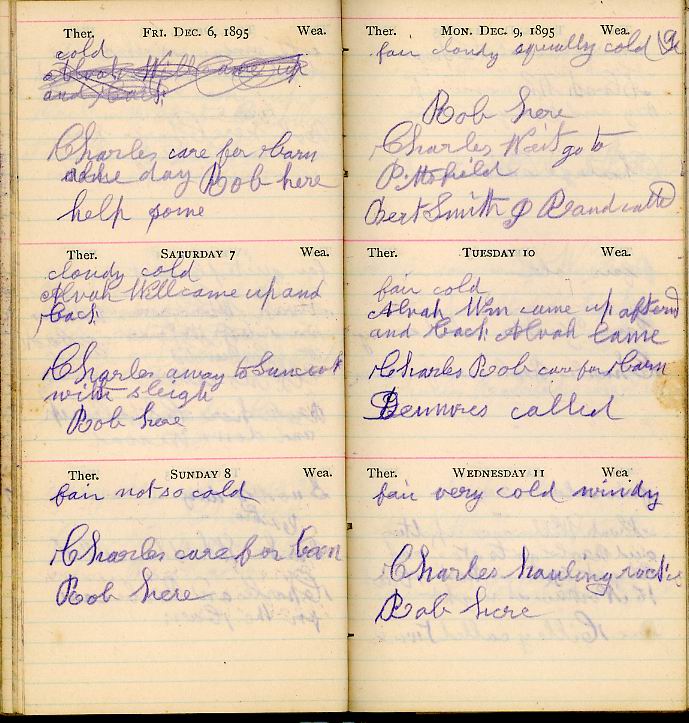 Ther. FRI. DEC. 6, 1895 Wea.
cold
Alvah Will came up
and back
Charles care for barn
some day Rob here
help some
Ther. SATURDAY 7 Wea.
cloudy cold
Alvah Will came up and
back
Charles away to Suncook
with sleigh
Rob here
Ther. SUNDAY 8 Wea.
fair not so cold
Charles care for barn
Rob here
Ther. MON. DEC. 9, 1895 Wea.
fair cloudy squally cold
Rob here
Charles Wait go to
Pittsfield
Bert Smith P R and
Ther. TUESDAY 10 Wea.
fair cold
Alvah Wm came up aftern
and back Alvah came
Charles Rob care for barn
called
Ther. WEDNESDAY 11 Wea
fair very cold windy
Charles hauling rocks
Rob here